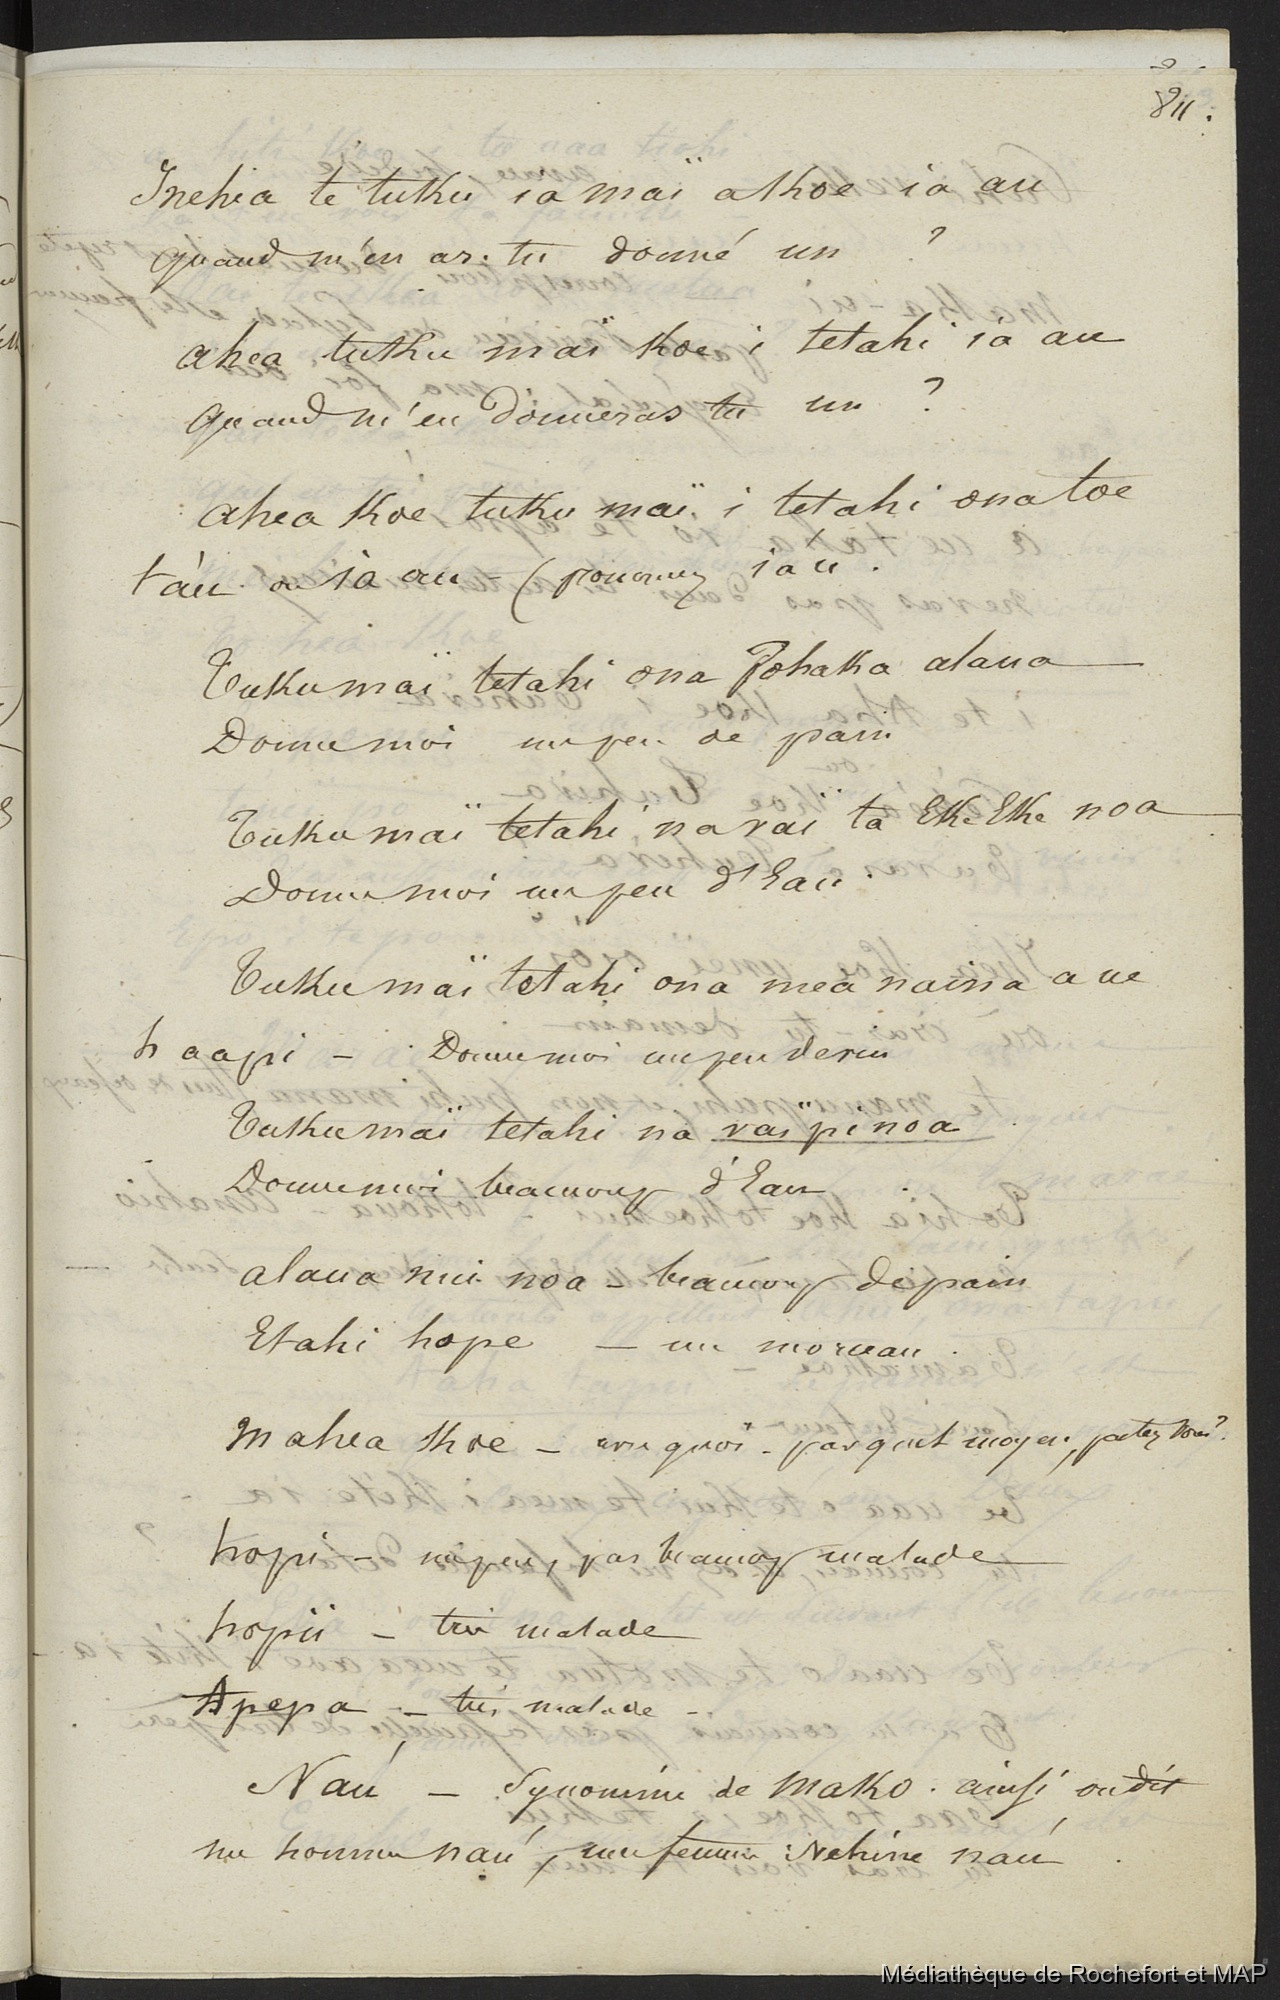 811.
Inehia te tuku ia maï a koe ia au
quand m'en as-tu donné un ?
ahea tuku maï koe i tetahi ia au
quand m'en donneras tu un ?
ahea koe tuku maï i tetahi ona toe
t'áu ou ia au - (prononcez iau.
Tuku maï tetahi ona Pohaka alaua
Donne moi un peu de pain
Tuku maï tetahi na vaï ta Eke Eke noa
Donne moi un peu d'Eau
Tuku maï tetahi ona mea naina a ue
haapi - Donne moi un peu de vin
Tuku maï tetahi na vaï pi noa
Donne moi beaucoup d'Eau
alaua nui noa - beaucoup de pain
Etahi hope - un morceau
Mahea koe - avec quoi - par quel moyen, partez vous?
hopi - un peu, pas beaucoup malade
hopii - très malade
Apepa - très malade -
Naú - Synonime de Mako. ainsi on dit
un homme naú, une femme Vehine naú
Médiathèque de Rochefort et MAP